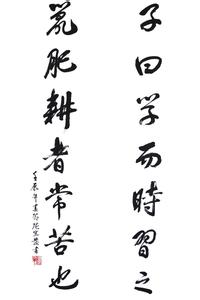 子曰学而時習之
肥耕者常苦也
壬辰年